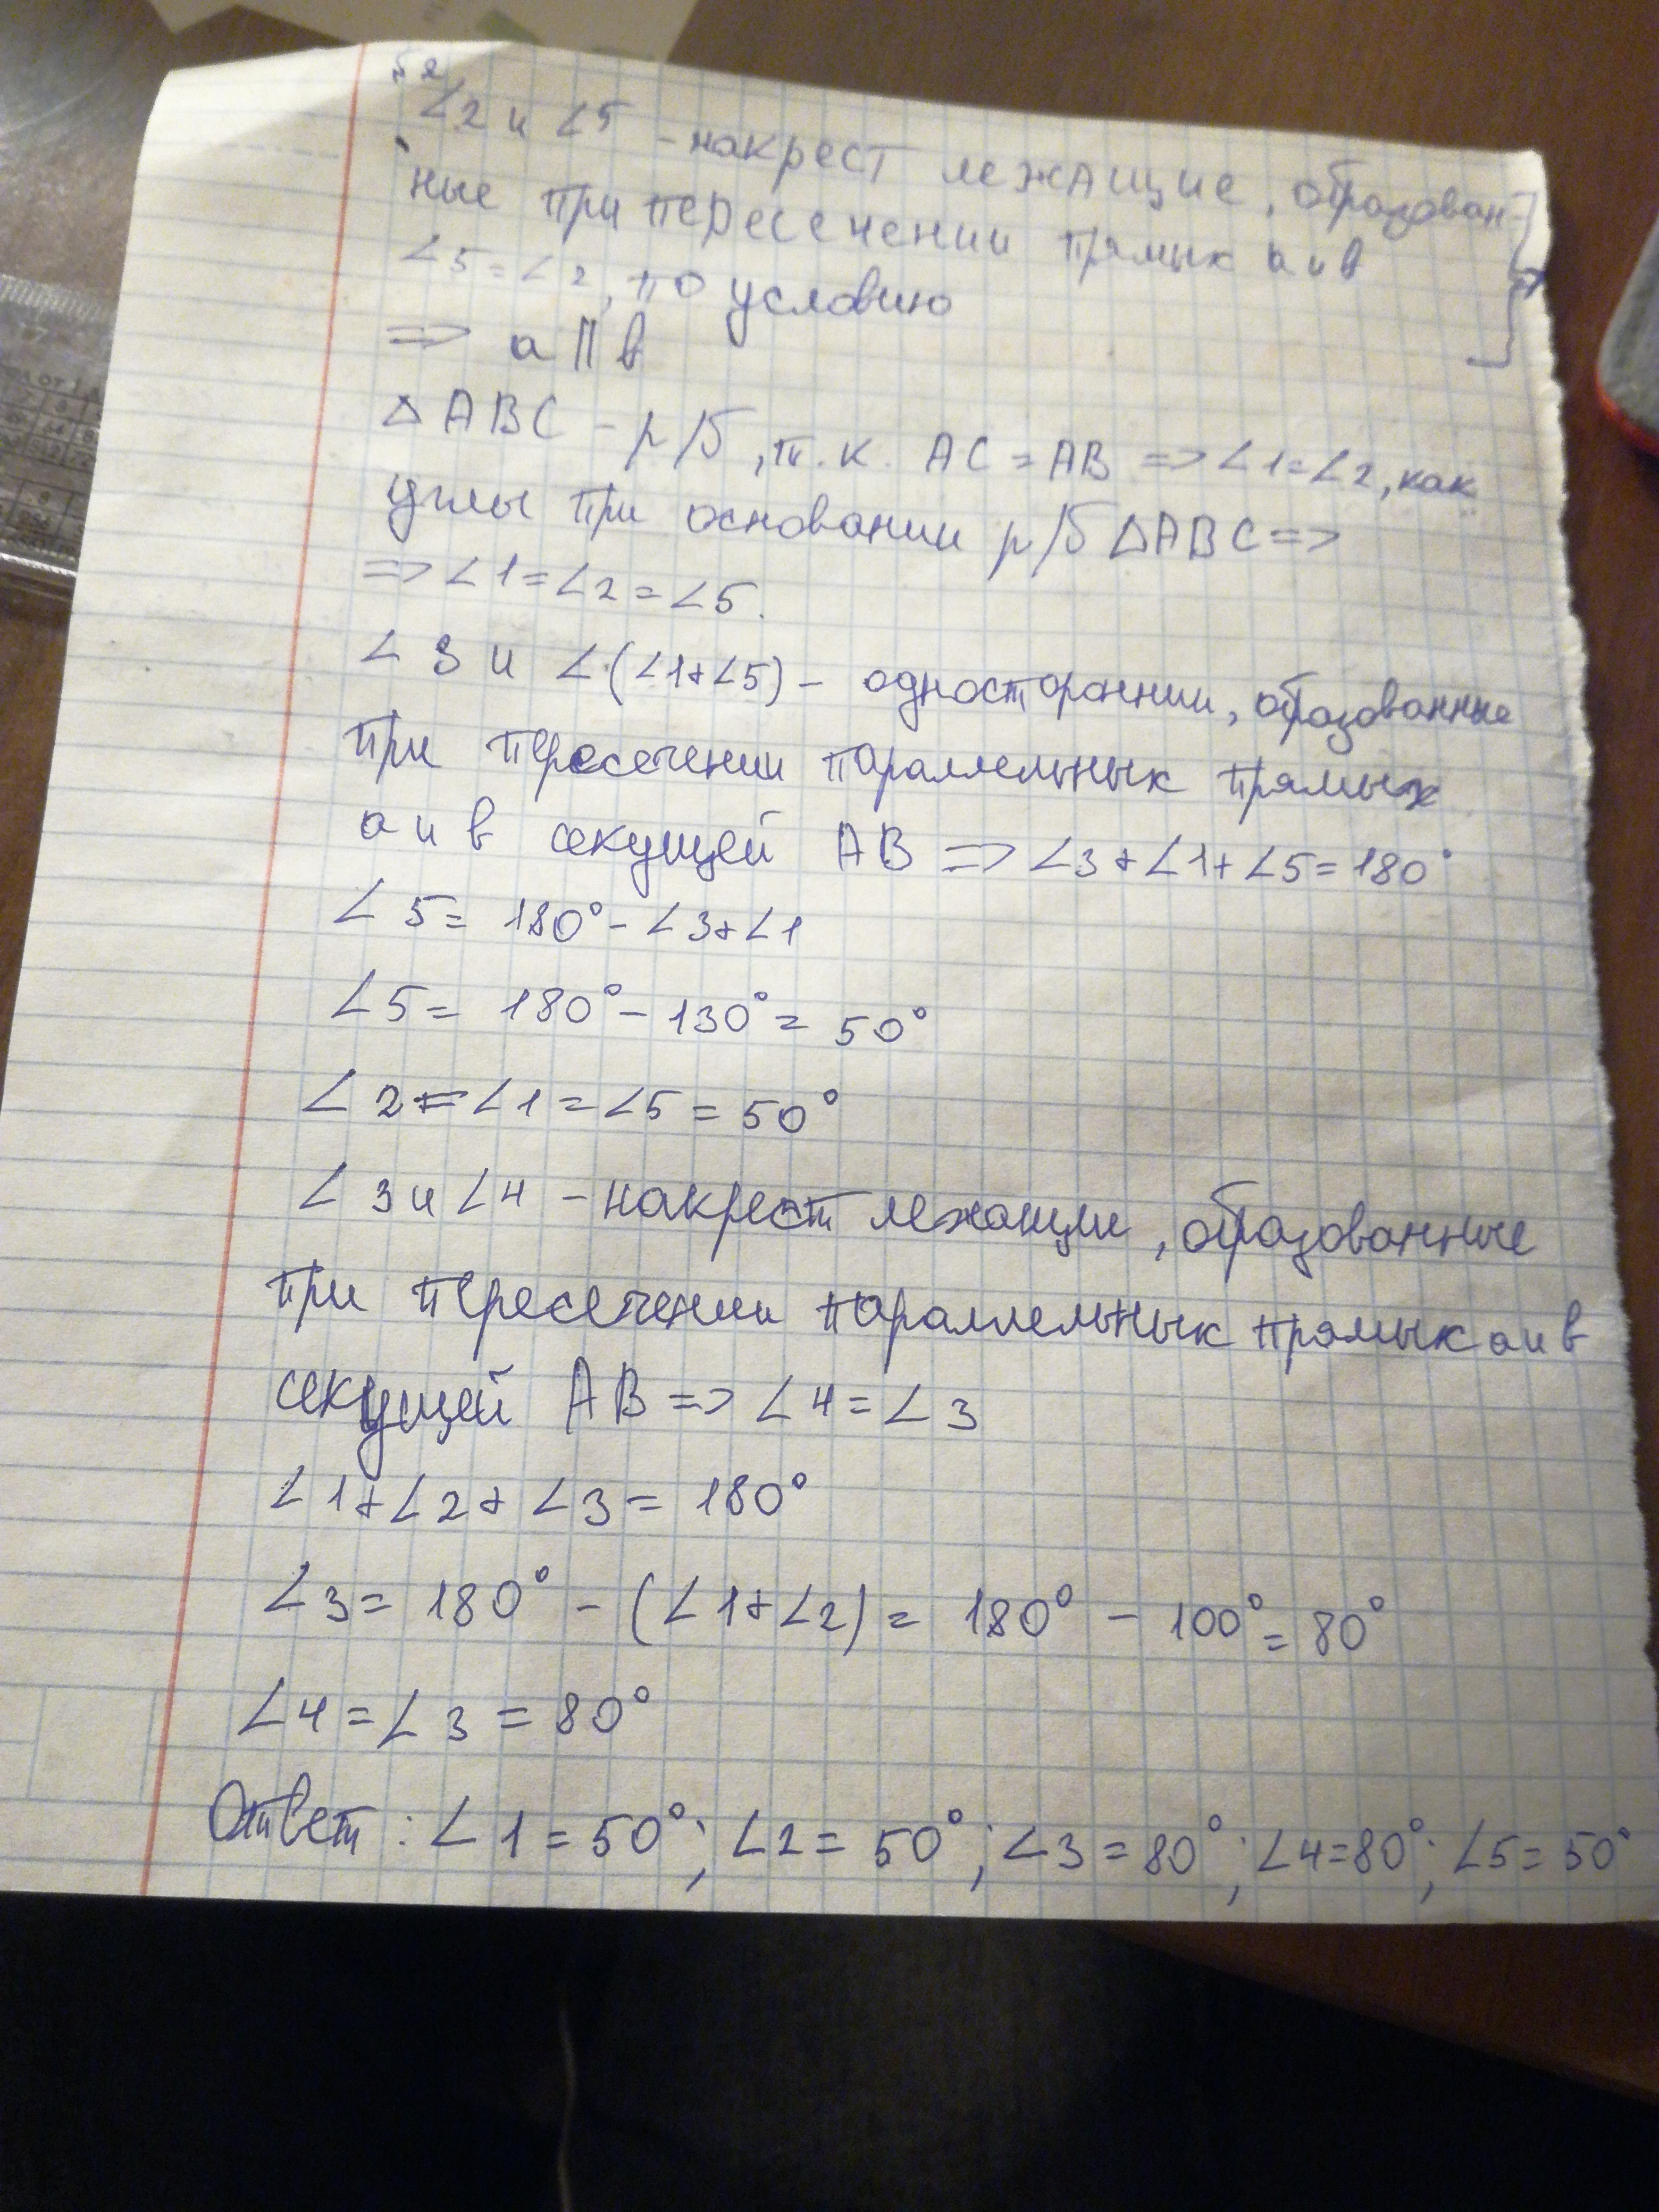 ∠2 и ∠5 - накрест лежащие, образован-
ные при пересечении прямых a и b
∠5 = ∠2, по условию
=> a || b
△ABC - р/б, т.к. AC = AB => ∠1 = ∠2, как
углы при основании р/б △ABC =>
=> ∠1 = ∠2 = ∠5.
∠3 и ∠(∠1+∠5) - односторонни, образованные
при пересечении параллельных прямых
a и b секущей AB => ∠3 + ∠1 + ∠5 = 180°
∠5 = 180° - ∠3 + ∠1
∠5 = 180° - 130° = 50°
∠2 = ∠1 = ∠5 = 50°
∠3 и ∠4 - накрест лежащие, образованные
при пересечении параллельных прямых a и b
секущей AB => ∠4 = ∠3
∠1 + ∠2 + ∠3 = 180°
∠3 = 180° - (∠1 + ∠2) = 180° - 100° = 80°
∠4 = ∠3 = 80°
Ответ: ∠1 = 50°; ∠2 = 50°; ∠3 = 80°; ∠4 = 80°; ∠5 = 50°